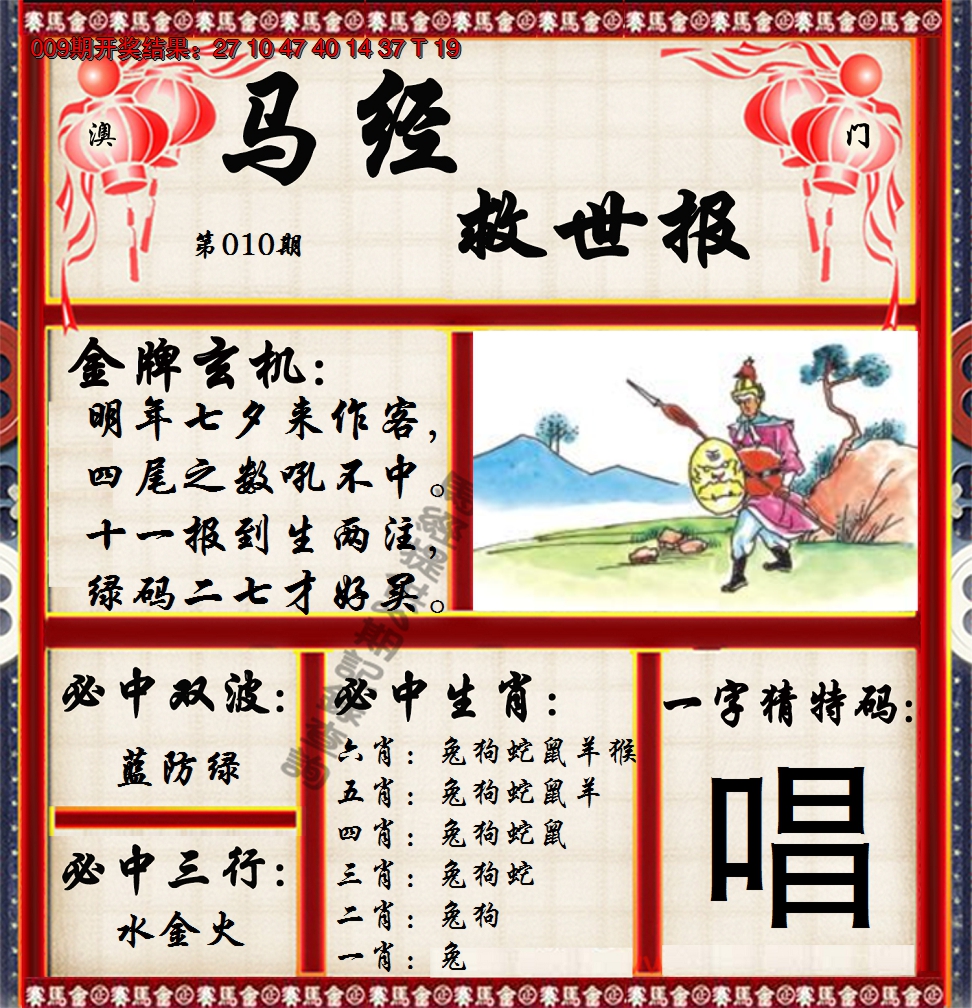 009期开奖结果：27 10 47 40 14 37 T 19
澳
门
马经
救世报
第010期
金牌玄机：
明年七夕来作客，
四尾之数吼不中。
十一报到生两注，
绿码二七才好买。
必中双波：
蓝防绿
必中三行：
水金火
必中生肖：
六肖：兔狗蛇鼠羊猴
五肖：兔狗蛇鼠羊
四肖：兔狗蛇鼠
三肖：兔狗蛇
二肖：兔狗
一肖：兔
一字猜特码：
唱